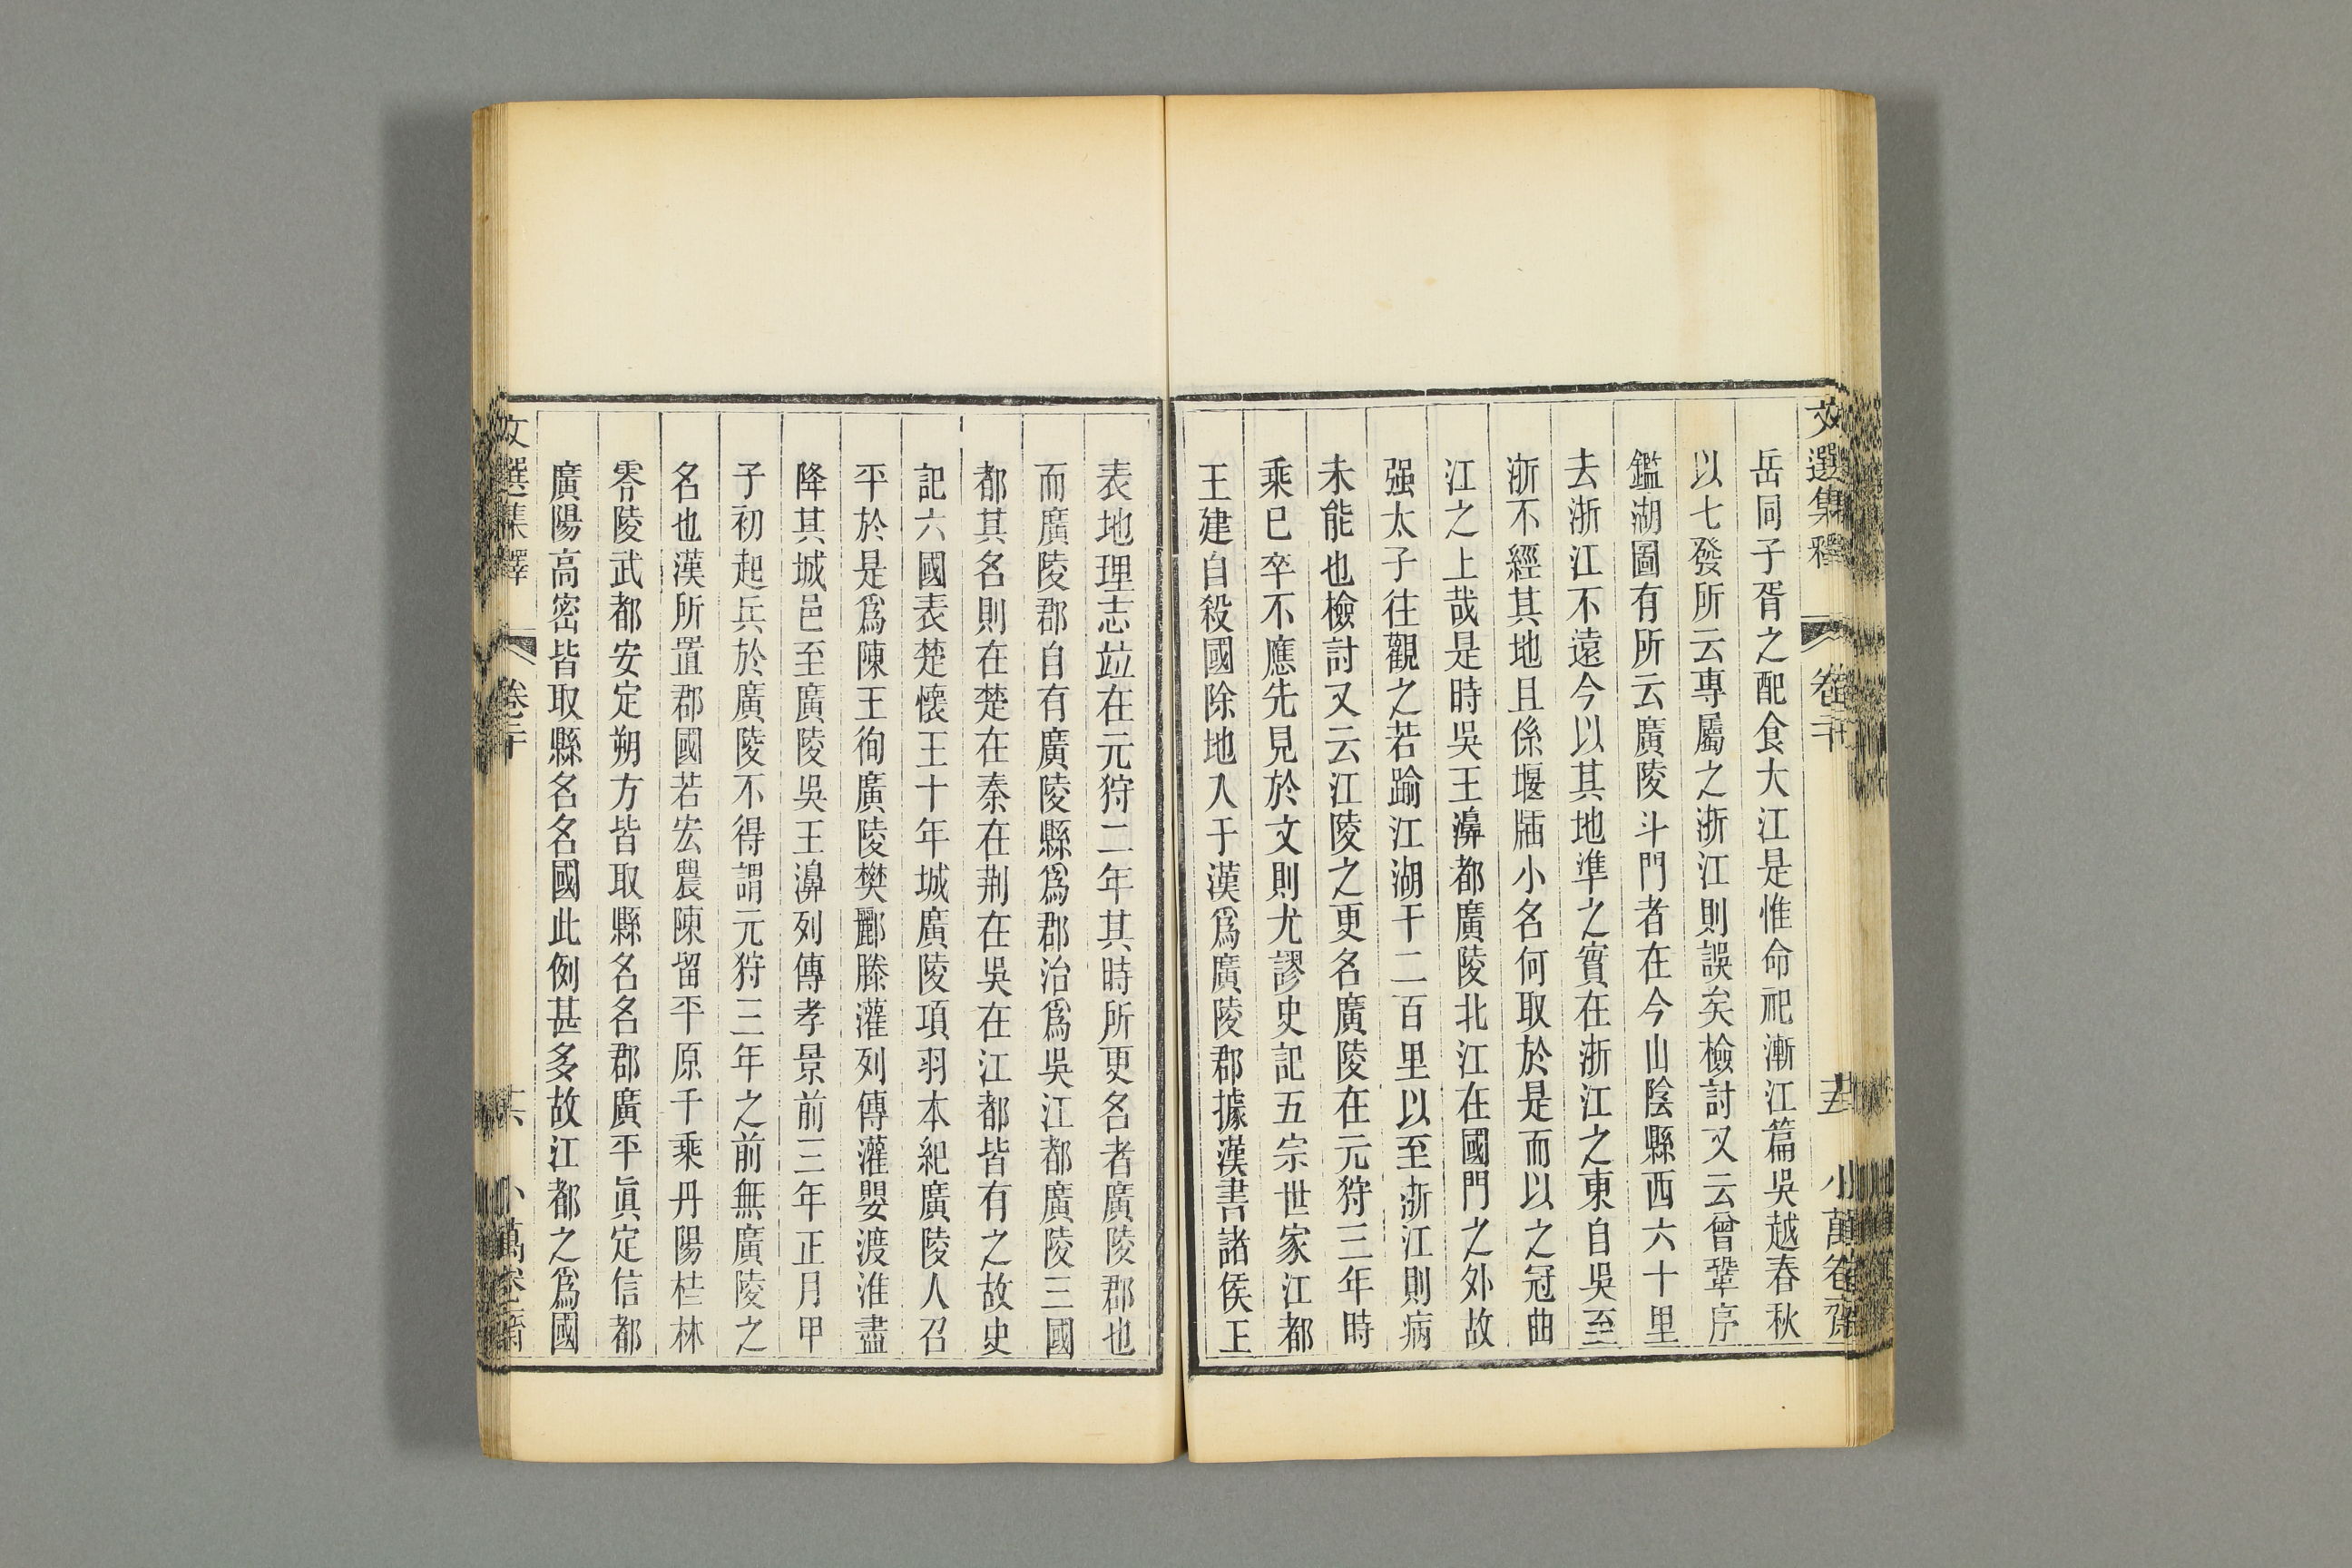 文選集釋 卷二十 十五 小萬卷齋
岳同子胥之配食大江是惟命祀漸江篇吳越春秋
以七發所云專屬之浙江則誤矣檢討又云曾鞏序
鑑湖圖有所云廣陵斗門者在今山陰縣西六十里
去浙江不遠今以其地準之實在浙江之東自吳至
浙不經其地且係堰牐小名何取於是而以之冠曲
江之上哉是時吳王濞都廣陵北江在國門之外故
强太子往觀之若踰江湖干二百里以至浙江則病
未能也檢討又云江陵之更名廣陵在元狩三年時
乘已卒不應先見於文則尤謬史記五宗世家江都
王建自殺國除地入于漢爲廣陵郡據漢書諸侯王
表地理志竝在元狩二年其時所更名者廣陵郡也
而廣陵郡自有廣陵縣爲郡治爲吳江都廣陵三國
都其名則在楚在秦在荆在吳在江都皆有之故史
記六國表楚懷王十年城廣陵項羽本紀廣陵人召
平於是爲陳王徇廣陵樊酈滕灌列傳灌嬰渡淮盡
降其城邑至廣陵吳王濞列傳孝景前三年正月甲
子初起兵於廣陵不得謂元狩三年之前無廣陵之
名也漢所置郡國若宏農陳留平原千乘丹陽桂林
零陵武都安定朔方皆取縣名名郡廣平眞定信都
廣陽高密皆取縣名名國此例甚多故江都之爲國
文選集釋 卷二十 十六 小萬卷齋